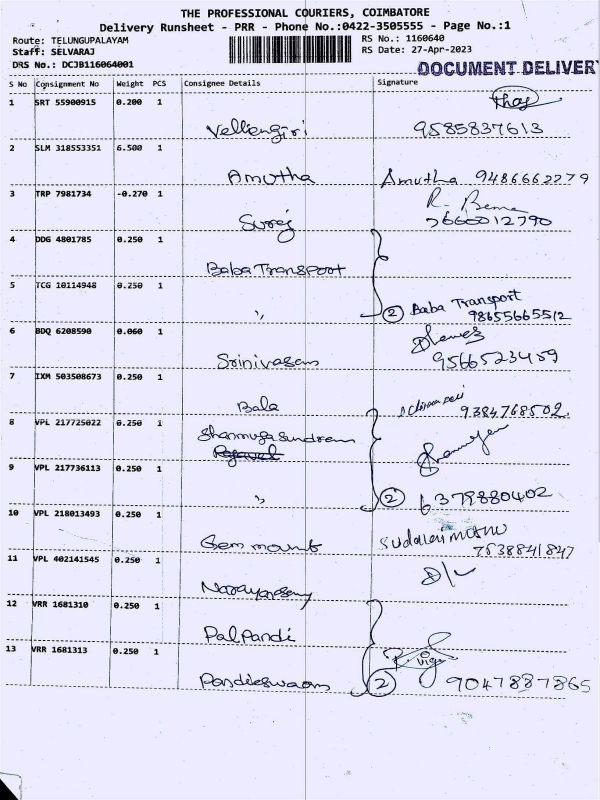 THE PROFESSIONAL COURIERS, COIMBATORE
Delivery Runsheet - PRR - Phone No.:0422-3505555 - Page No.:1
Route: TELUNGUPALAYAM RS No.: 1160640
Staff: SELVARAJ RS Date: 27-Apr-2023
DRS No.: DCJB116064001
DOCUMENT DELIVER
S No Consignment No Weight PCS Consignee Details Signature
1 SRT 55900915 0.200 1
Vellengiri 9585837613
2 SLM 318553351 6.500 1
Amutha Amutha 9486662279
3 TRP 7981734 -0.270 1 R. Bema
Suraj 7666012790
4 DDG 4801785 0.250 1
Baba Transport
5 TCG 10114948 0.250 1
" 2 Baba Transport
98655665512
6 BDQ 6208590 0.060 1
Srinivasan 9566523459
7 IXM 503508673 0.250 1
Bala 9384768502.
8 VPL 217725022 0.250 1
Shanmuga Sundram
9 VPL 217736113 0.250 1
" 2 6379880402
10 VPL 218013493 0.250 1
Gem mount Sudalaimuthu
7538841847
11 VPL 402141545 0.250 1
Narayanasamy
12 VRR 1681310 0.250 1
PalPandi
13 VRR 1681313 0.250 1
Pandieswaran 2 9047887865